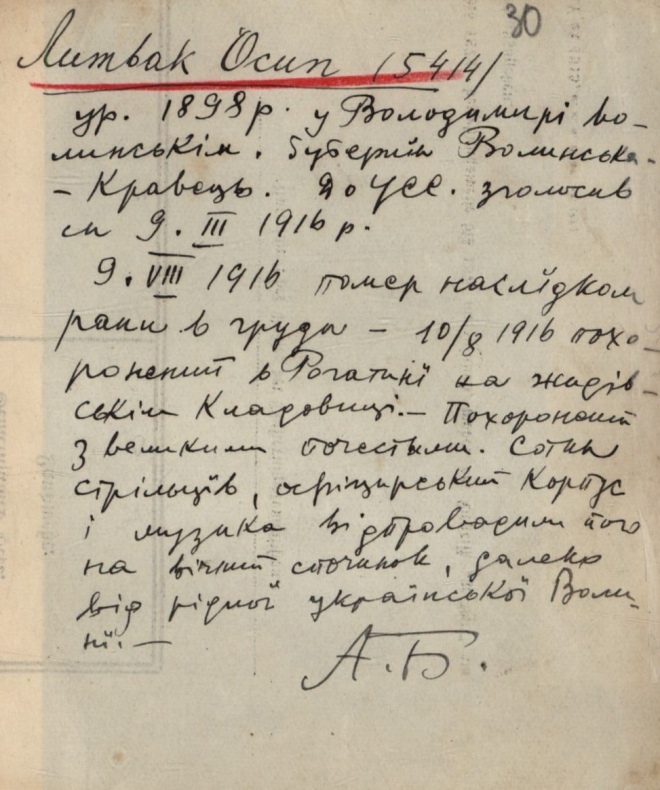 30
Литвак Осип (5414)
ур. 1898 р. у Володимирі во-
линськім. Губернія Волинська.
- Кравець. До УСС. зголосив
ся 9. III 1916 р.
9. VIII 1916 помер наслїдком
рани в груди - 10/8 1916 похо-
ронений в Рогатинї на жидів-
ськім кладовищі. - Похоронений
з великими почестями. Сотня
стрільцїв, офіцирський корпус
і музика відпровадили його
на вічний спочинок, далеко
від рідної української Воли-
нї. -
А. Б.